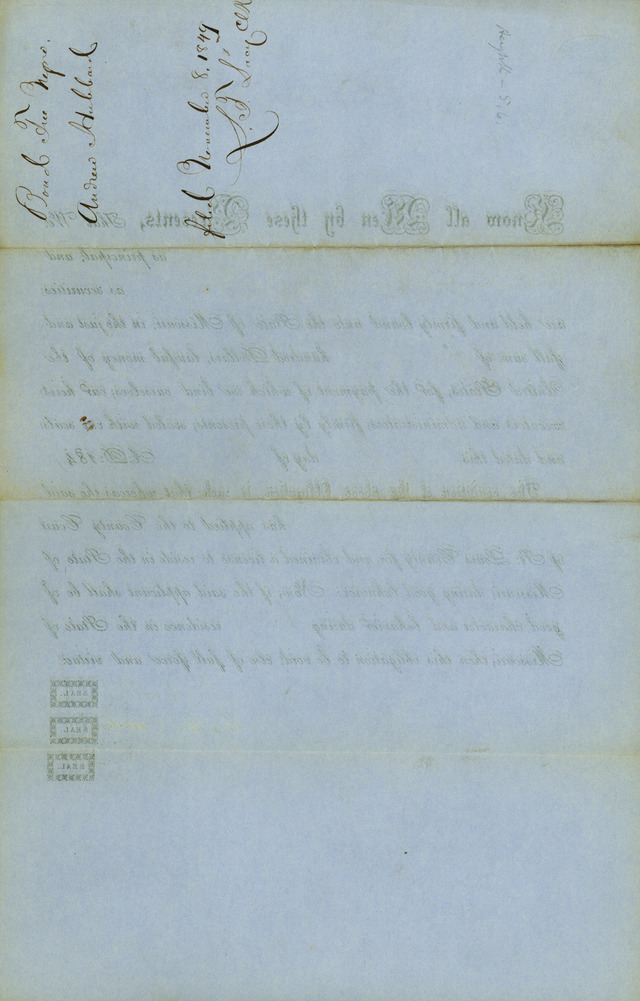 Bond Free Negro.
Andrew Hubbard
filed November 8, 1849
Clk
Know all Men by these Presents, That We,
as principal, and
as securities,
are held and firmly bound unto the State of Missouri, in the just and
full sum of hundred Dollars, lawful money of the
United States, for the payment of which we bind ourselves, our heirs
executors and administrators, firmly by these presents, sealed with our seals
and dated this day of A.D. 184
The condition of the above Obligation is such, that whereas the said
has applied to the County Court
of St. Louis County for and obtained a license to reside in the State of
Missouri during good behavior: Now, if the said applicant shall be of
good character and behavior during residence in the State of
Missouri, then this obligation to be void, else of full force and virtue.
SEAL.
SEAL.
SEAL.